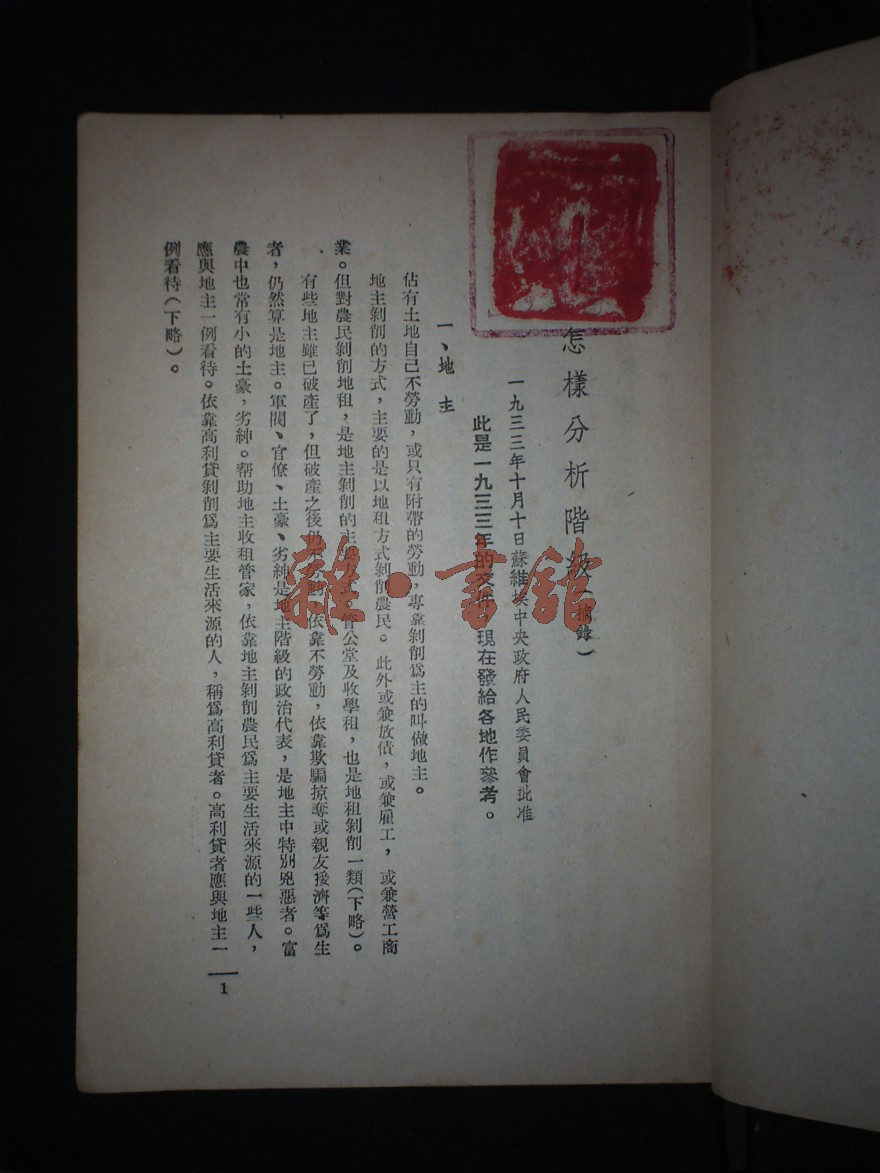 怎樣分析階級(摘錄)
一九三三年十月十日蘇維埃中央政府人民委員會批准
此是一九三三年的文件，現在發給各地作參考。
一、地主
佔有土地自己不勞動，或只有附帶的勞動，專靠剝削爲主的叫做地主。
地主剝削的方式，主要的是以地租方式剝削農民。此外或兼放債，或兼雇工，或兼營工商
業。但對農民剝削地租，是地主剝削的主要方式。管公堂及收學租，也是地租剝削一類(下略)。
有些地主雖已破產了，但破產之後仍不勞動，依靠不勞動，依靠欺騙掠奪或親友接濟等爲生
者，仍然算是地主。軍閥、官僚、土豪、劣紳是地主階級的政治代表，是地主中特別兇惡者。富
農中也常有小的土豪，劣紳。帮助地主收租管家，依靠地主剝削農民爲主要生活來源的一些人，
應與地主一例看待。依靠高利貸剝削爲主要生活來源的人，稱爲高利貸者。高利貸者應與地主一
例看待(下略)。
1
雜·書館